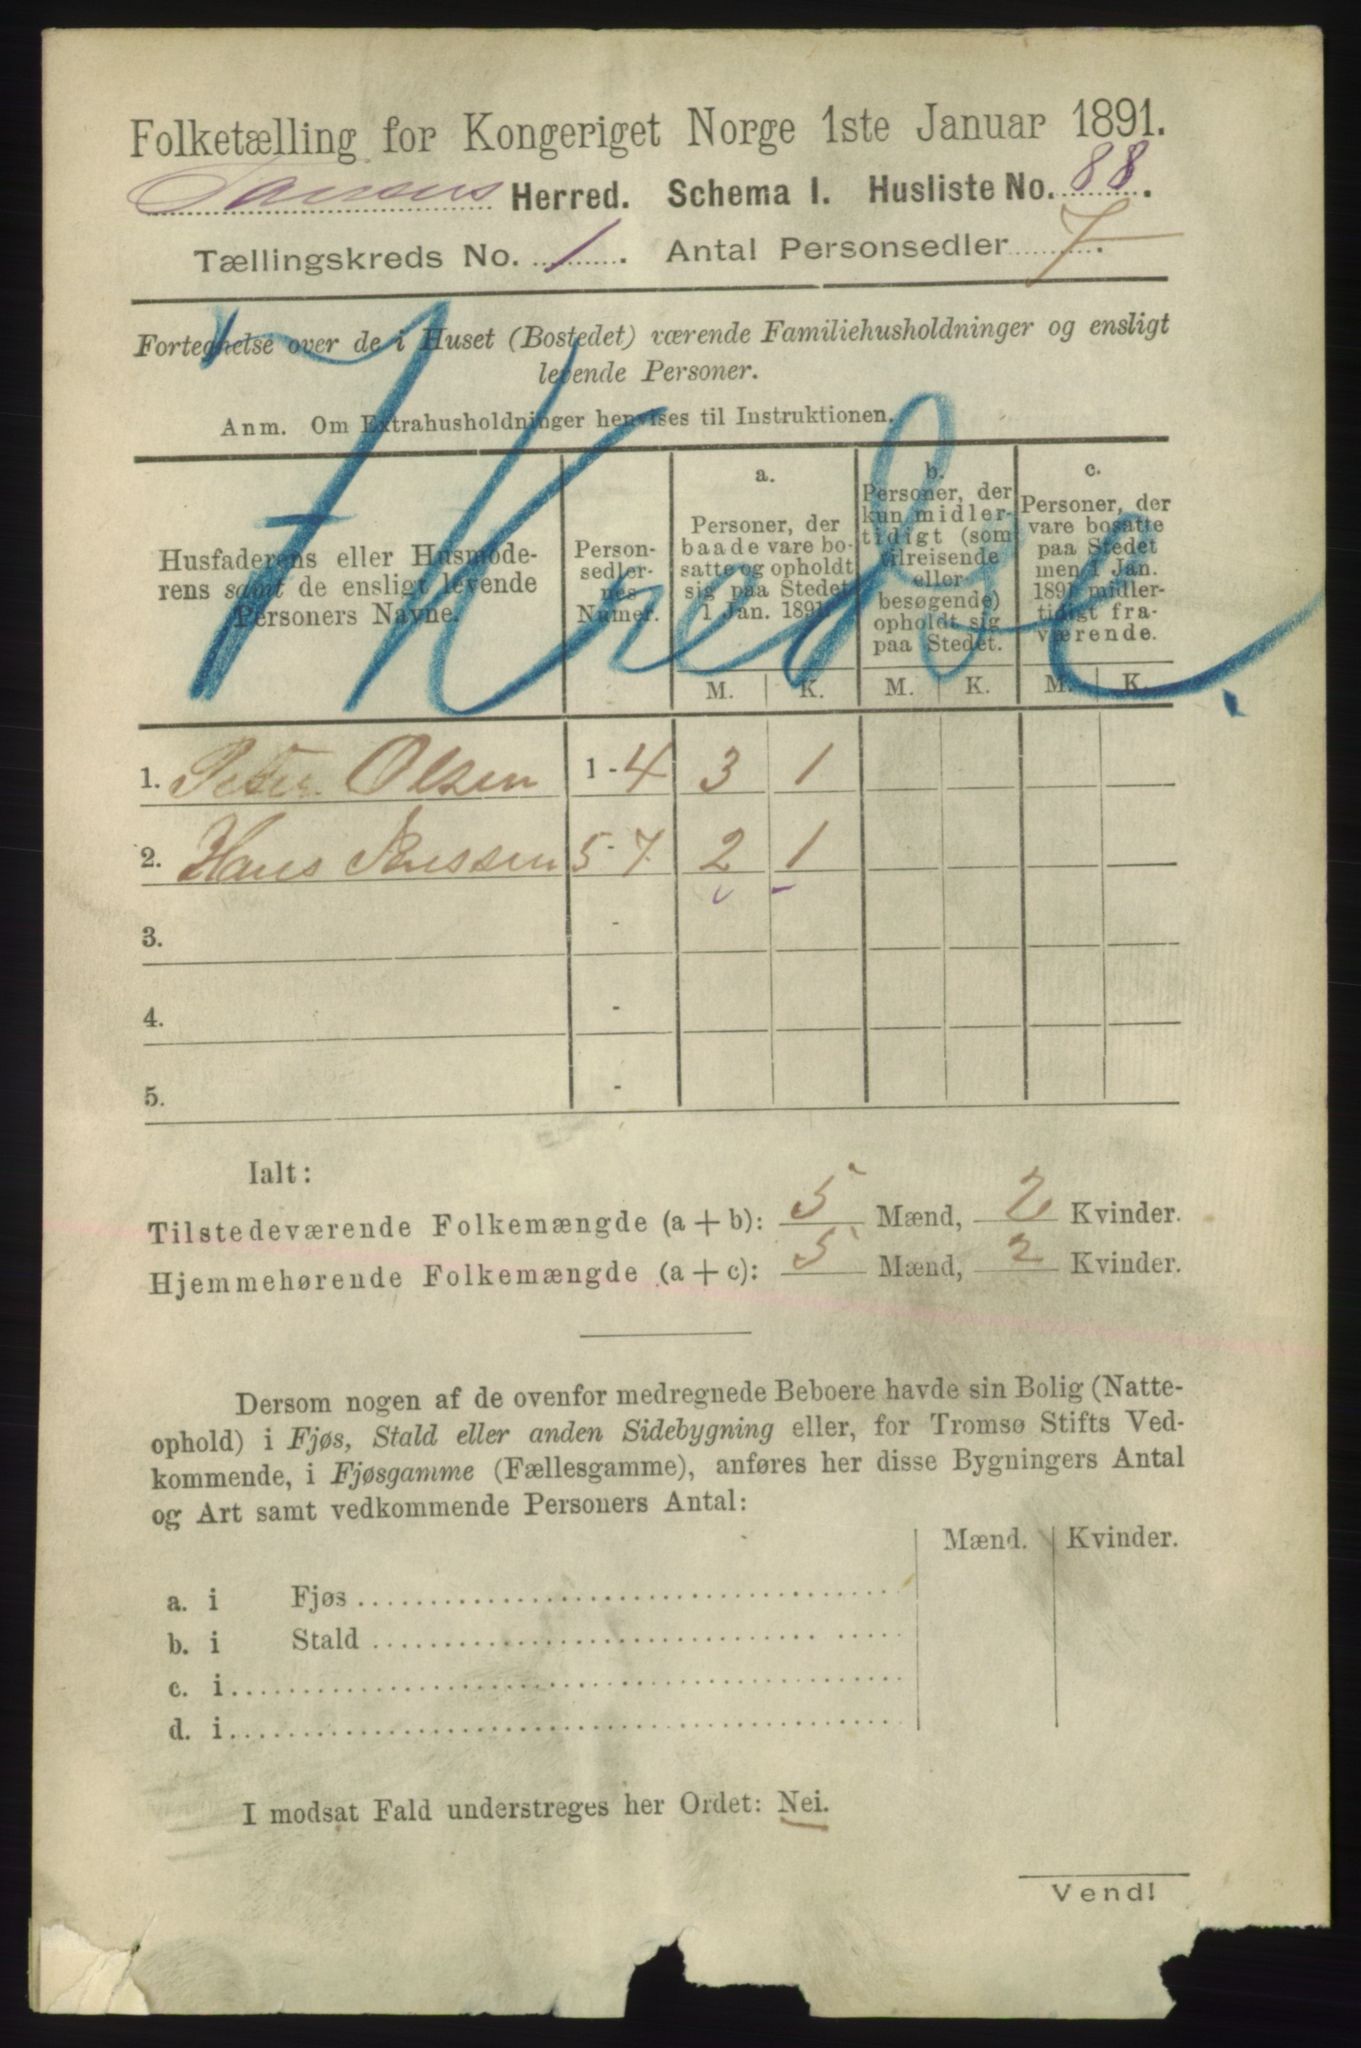 Folketælling for Kongeriget Norge 1ste Januar 1891.
Herred. Schema I. Husliste No. 88.
Tællingskreds No. 1. Antal Personsedler 7.
Fortegnelse over de i Huset (Bostedet) værende Familiehusholdninger og ensligt
levende Personer.
Anm. Om Extrahusholdninger henvises til Instruktionen.
7 Kreds.
Husfaderens eller Husmode-
rens samt de ensligt levende
Personers Navne.
Person-
sedler-
nes
Numer.
a.
Personer, der
baade vare bo-
satte og opholdt
sig paa Stedet
1 Jan. 1891.
b.
Personer, der
kun midler-
tidigt (som
tilreisende
eller
besøgende)
opholdt sig
paa Stedet.
c.
Personer, der
vare bosatte
paa Stedet
men 1 Jan.
1891 midler-
tidigt fra-
værende.
M. K. M. K. M. K.
1. Peter Olsen 1-4 3 1
2. Hans Jenssen 5-7. 2 1
3. -
4. -
5. -
Ialt:
Tilstedeværende Folkemængde (a + b): 5 Mænd, 2 Kvinder.
Hjemmehørende Folkemængde (a + c): 5 Mænd, 2 Kvinder.
Dersom nogen af de ovenfor medregnede Beboere havde sin Bolig (Natte-
ophold) i Fjøs, Stald eller anden Sidebygning eller, for Tromsø Stifts Ved-
kommende, i Fjøsgamme (Fællesgamme), anføres her disse Bygningers Antal
og Art samt vedkommende Personers Antal:
Mænd. Kvinder.
a. i Fjøs
b. i Stald
c. i
d. i
I modsat Fald understreges her Ordet: Nei.
Vend!